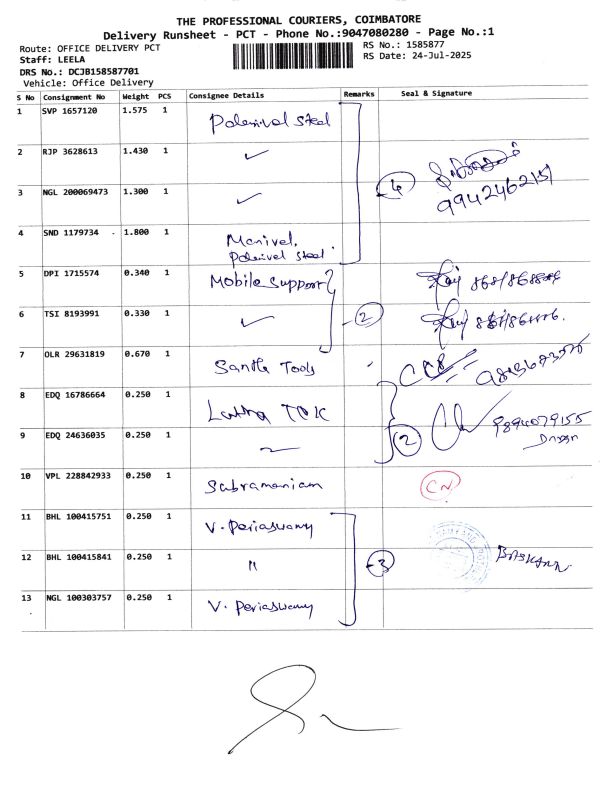 THE PROFESSIONAL COURIERS, COIMBATORE
Delivery Runsheet - PCT - Phone No.:9047080280 - Page No.:1
Route: OFFICE DELIVERY PCT
RS No.: 1585877
Staff: LEELA
RS Date: 24-Jul-2025
DRS No.: DCJB158587701
Vehicle: Office Delivery
S No Consignment No Weight PCS Consignee Details Remarks Seal & Signature
1 SVP 1657120 1.575 1 Polenivel Steel
2 RJP 3628613 1.430 1 ✓
3 NGL 200069473 1.300 1 ✓ 4 9942462151
4 SND 1179734 1.800 1 Manivel, Polenivel Steel
5 DPI 1715574 0.340 1 Mobile Support
6 TSI 8193991 0.330 1 ✓ 2
7 OLR 29631819 0.670 1 Tools
8 EDQ 16786664 0.250 1 Latha
9 EDQ 24636035 0.250 1 2 9894079155
10 VPL 228842933 0.250 1 Subramaniam CN
11 BHL 100415751 0.250 1 V. Periaswamy
12 BHL 100415841 0.250 1 " 3 BASKARR
13 NGL 100303757 0.250 1 V. Periaswamy